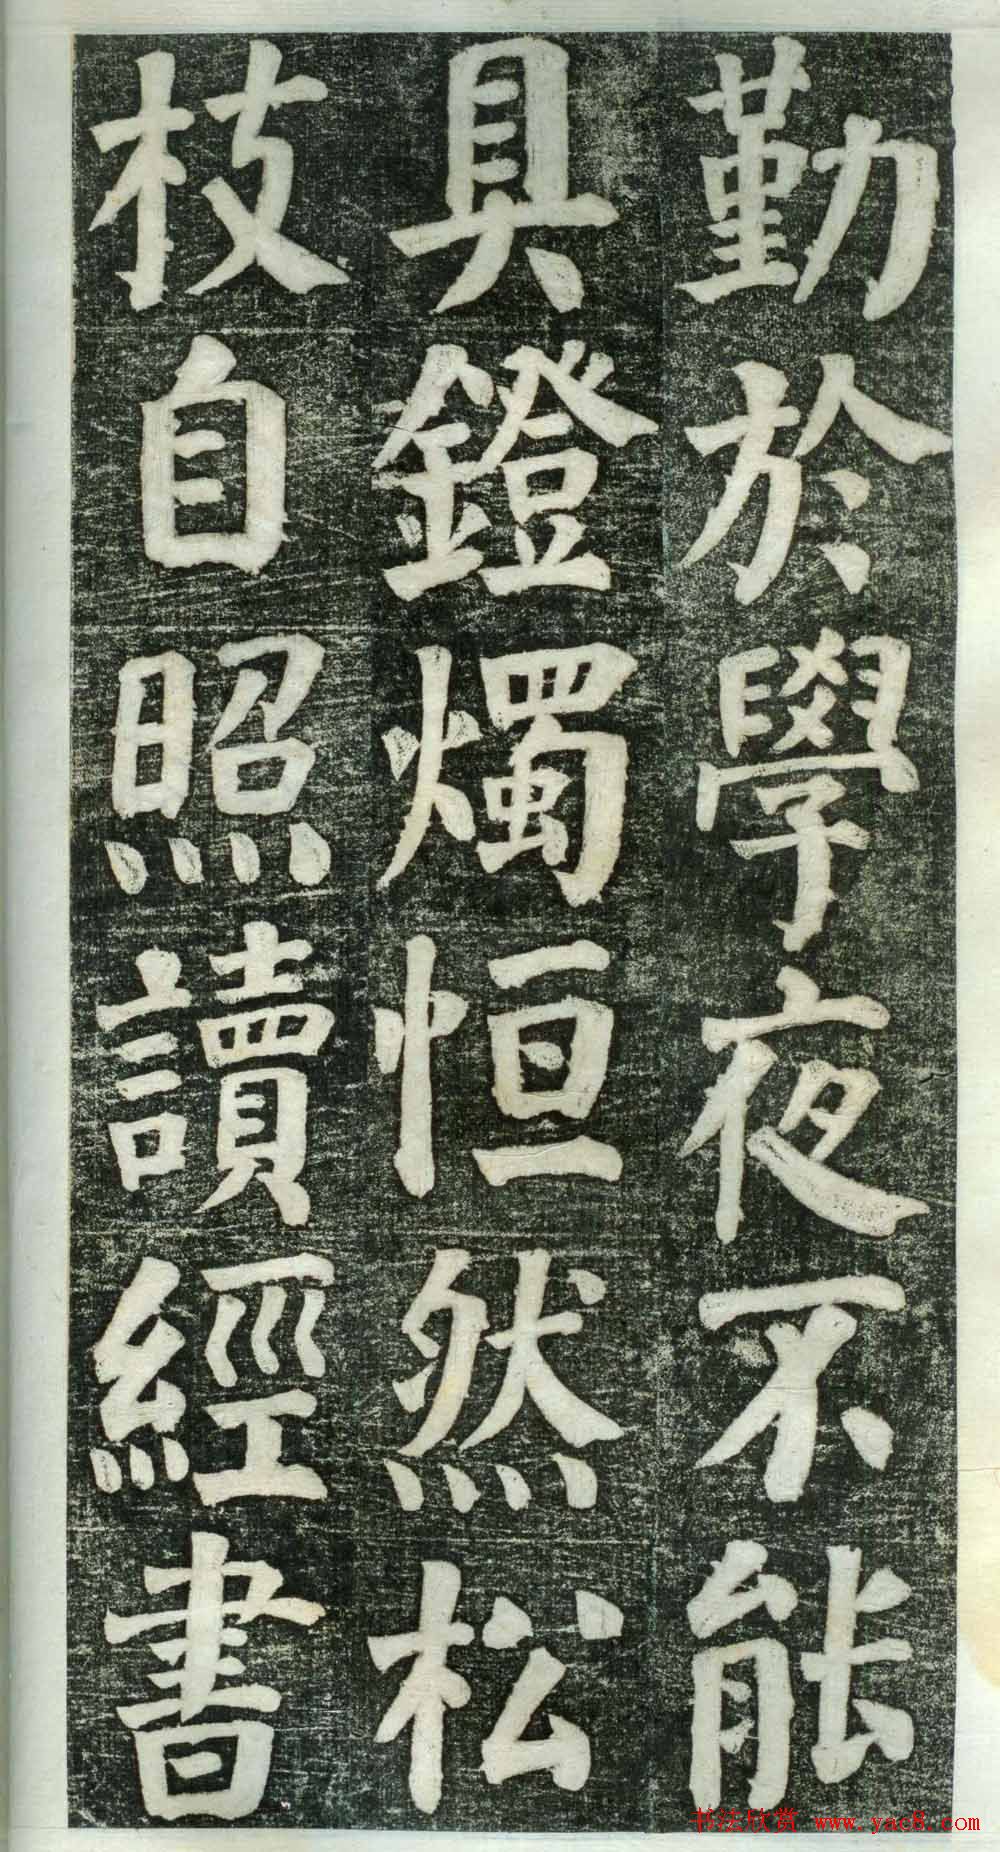 勤於學夜不能
具鐙燭恒然松
枝自照讀經書
书法欣赏 www.yac8.com